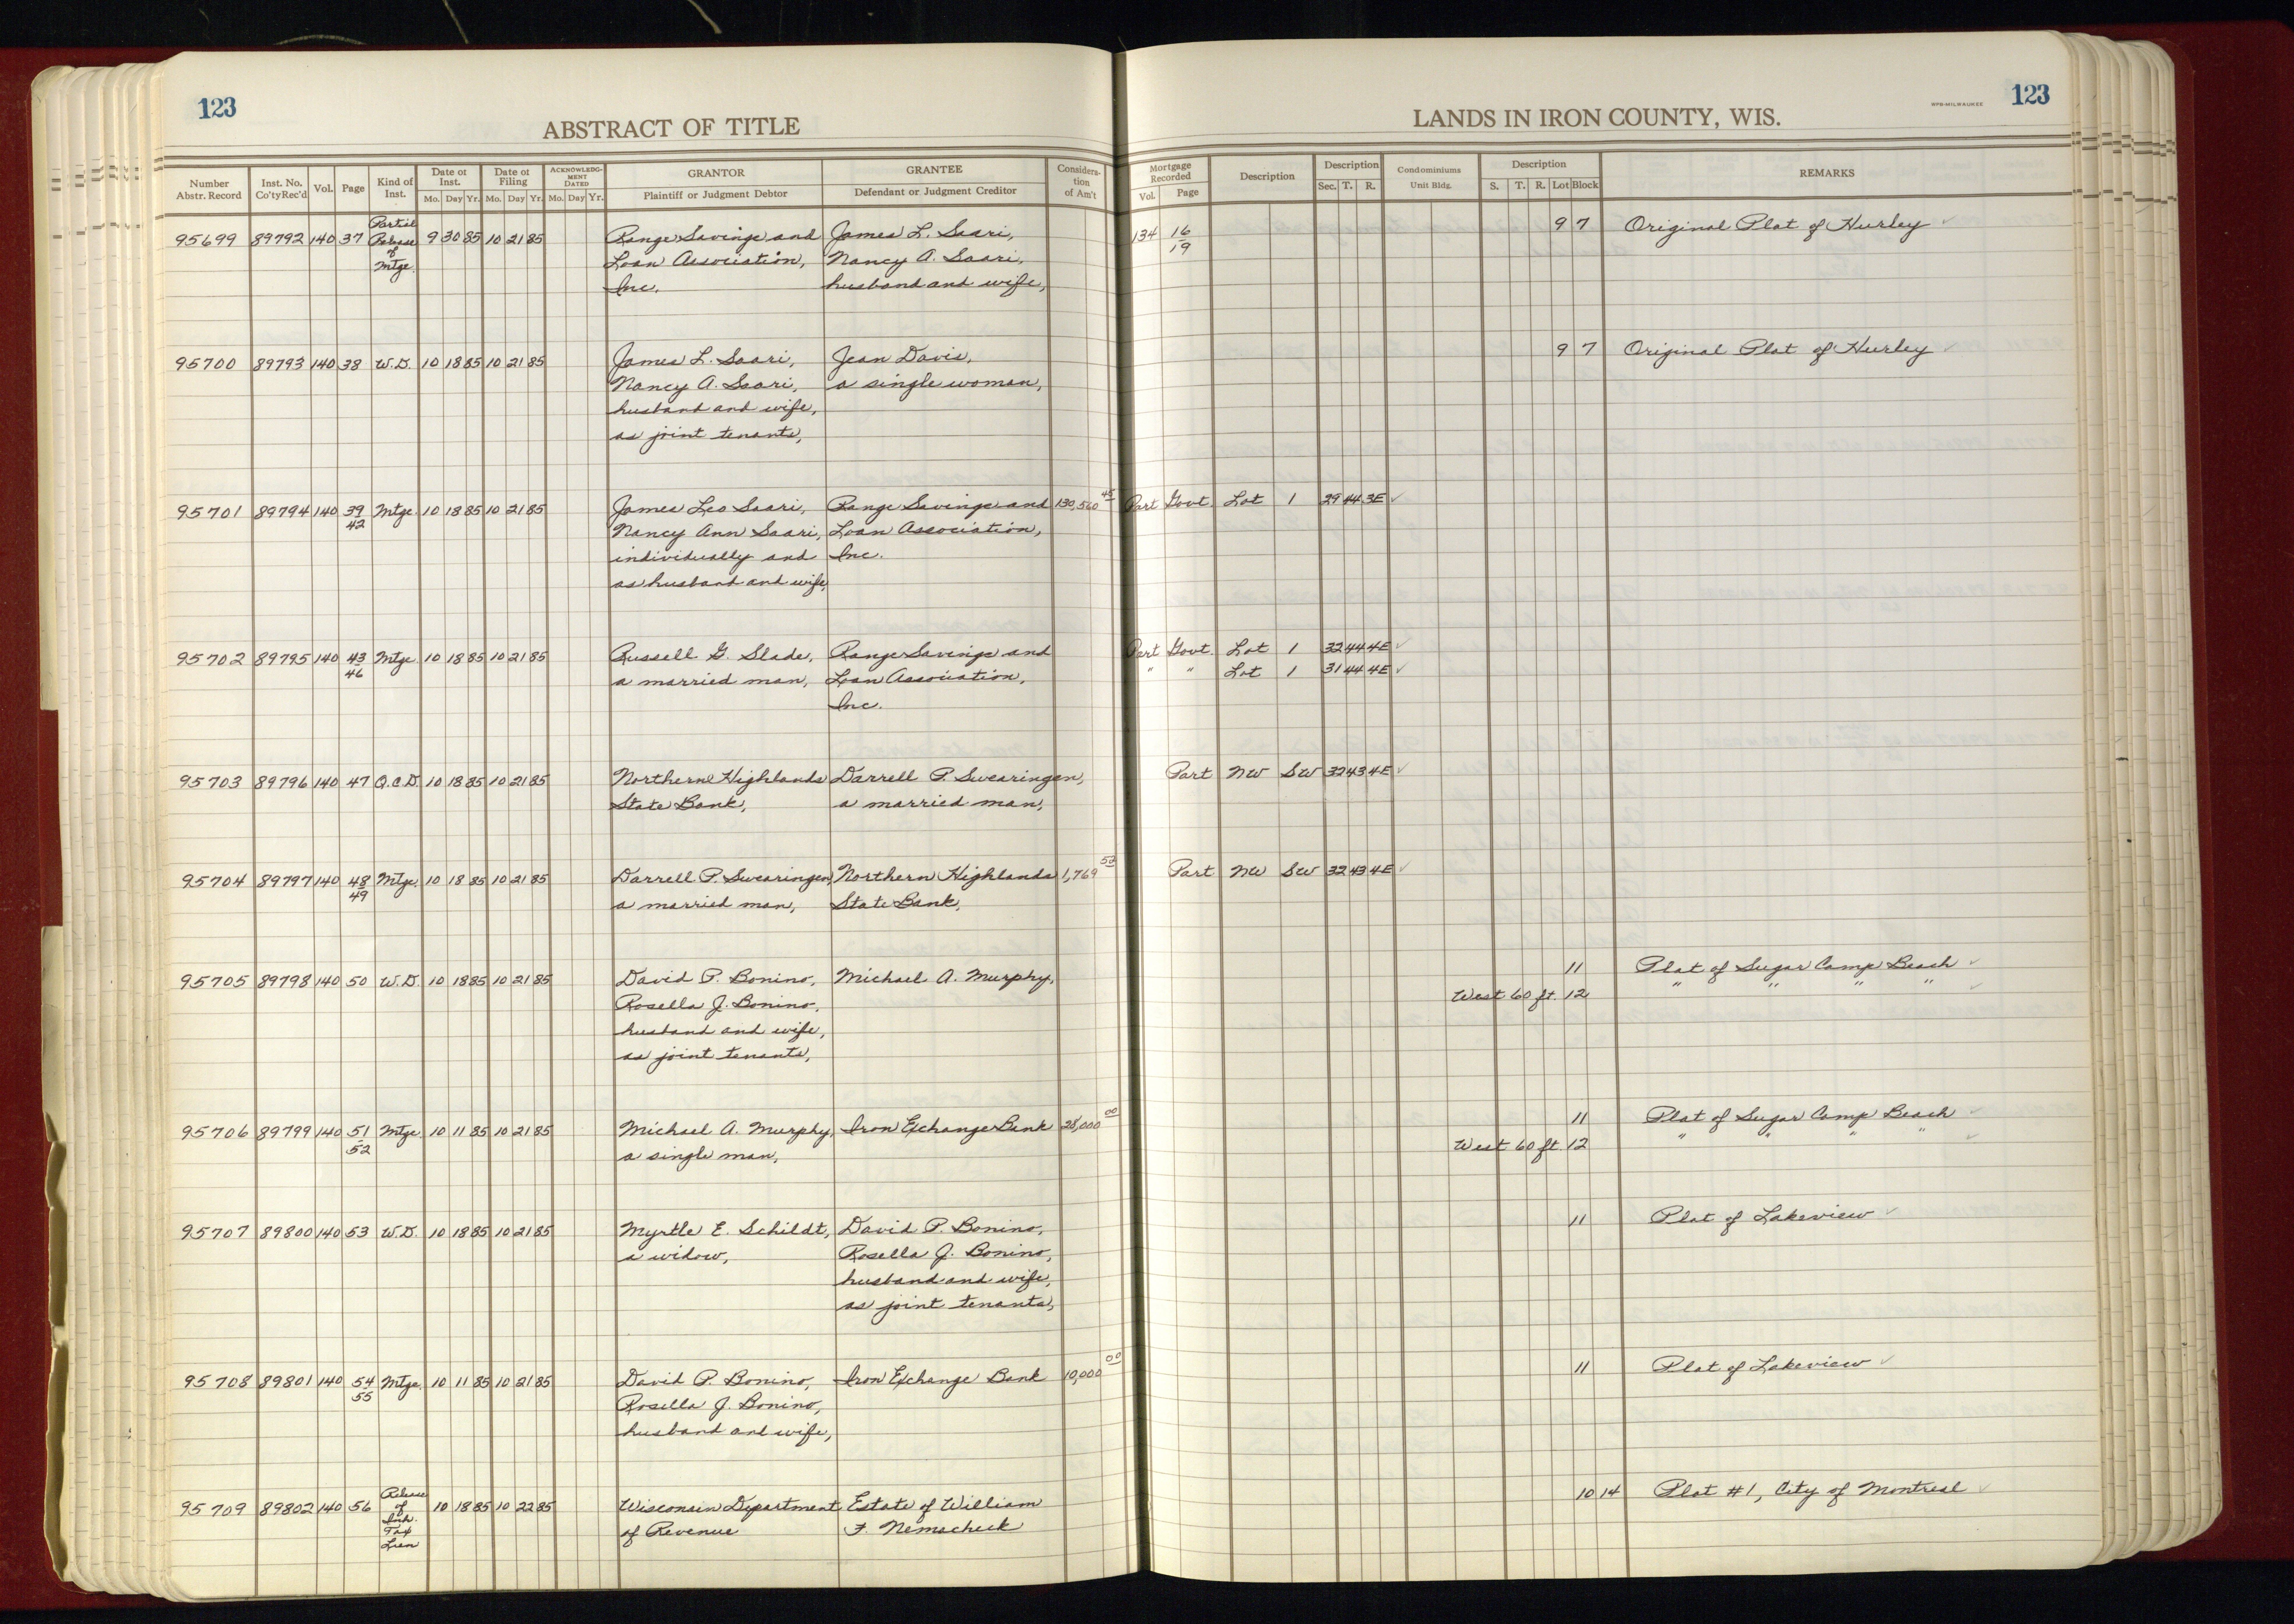 123
ABSTRACT OF TITLE
LANDS IN IRON COUNTY, WIS.
HPB-MILWAUKEE
123
Number Abstr. Record | Inst. No. Co'ty Rec'd | Vol. | Page | Kind of Inst. | Date of Inst. Mo. Day Yr. | Date of Filing Mo. Day Yr. | ACKNOWLEDGMENT DATED Mo. Day Yr. | GRANTOR Plaintiff or Judgment Debtor | GRANTEE Defendant or Judgment Creditor | Consideration of Am't | Mortgage Recorded Vol. Page | Description | Description Sec. T. R. | Condominiums Unit Bldg. | Description S. T. R. Lot Block | REMARKS
95699 89792 140 37 Partial Release of Mtge. 9 30 85 10 21 85 Range Savings and James L. Saari, 134 16/19 9 7 Original Plat of Hurley ✓
Loan Association, Nancy A. Saari,
Inc. husband and wife,
95700 89793 140 38 W.D. 10 18 85 10 21 85 James L. Saari, Jean Davis, 9 7 Original Plat of Hurley ✓
Nancy A. Saari, a single woman,
husband and wife,
as joint tenants,
95701 89794 140 39/42 Mtge. 10 18 85 10 21 85 James Leo Saari, Range Savings and 130,560 45 Part Govt. Lot 1 29 44 3E ✓
Nancy Ann Saari, Loan Association,
individually and Inc.
as husband and wife,
95702 89795 140 43/46 Mtge. 10 18 85 10 21 85 Russell G. Slade, Range Savings and Part Govt. Lot 1 32 44 4E ✓
a married man, Loan Association, " " Lot 1 31 44 4E ✓
Inc.
95703 89796 140 47 Q.C.D. 10 18 85 10 21 85 Northern Highlands Darrell P. Swearingen, Part NW SW 32 43 4E ✓
State Bank, a married man,
95704 89797 140 48/49 Mtge. 10 18 85 10 21 85 Darrell P. Swearingen, Northern Highlands 1,769 52 Part NW SW 32 43 4E ✓
a married man, State Bank,
95705 89798 140 50 W.D. 10 18 85 10 21 85 David P. Bonino, Michael A. Murphy, 11 Plat of Sugar Camp Beach ✓
Rosella J. Bonino, West 60 ft. 12 " " " " ✓
husband and wife,
as joint tenants,
95706 89799 140 51/52 Mtge. 10 11 85 10 21 85 Michael A. Murphy, Iron Exchange Bank 28,000 00 11 Plat of Sugar Camp Beach ✓
a single man, West 60 ft. 12 " " " " ✓
95707 89800 140 53 W.D. 10 18 85 10 21 85 Myrtle E. Schildt, David P. Bonino, 11 Plat of Lakeview ✓
a widow, Rosella J. Bonino,
husband and wife,
as joint tenants,
95708 89801 140 54/55 Mtge. 10 11 85 10 21 85 David P. Bonino, Iron Exchange Bank 10,000 00 11 Plat of Lakeview ✓
Rosella J. Bonino,
husband and wife,
95709 89802 140 56 Release of Inh. Tax Lien 10 18 85 10 22 85 Wisconsin Department Estate of William 10 14 Plat #1, City of Montreal ✓
of Revenue F. Nemacheck